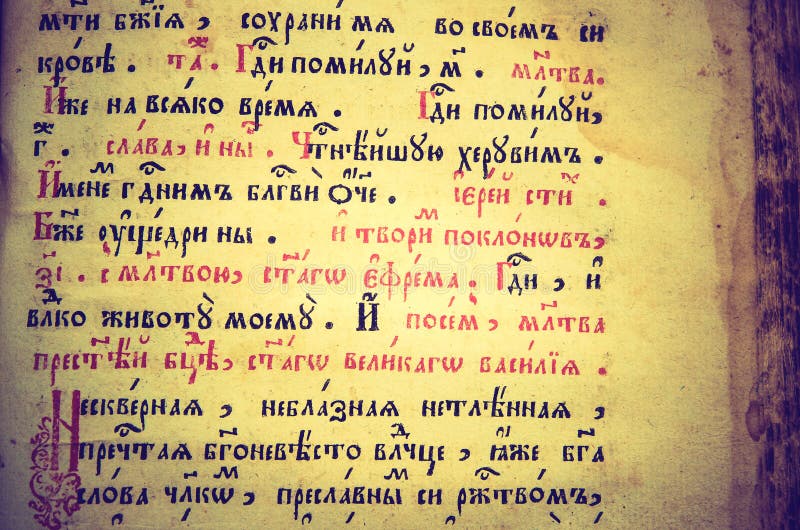 мт҃и бж҃їѧ, сохрани мѧ во свое́мъ си
кро́вѣ. таж. Гд҃и поми́луй, м҃. мл҃тва.
И҆́же на всѧ́ко вре́мѧ. Гд҃и поми́луй,
г҃. сла́ва, и҆ ны҃. Чт҃нѣ́йшую херуви́мъ.
И҆́менемъ гд҃нимъ блг҃вѝ ѻ҆́ч҃е. і҆ере́й сти҃х.
Бж҃е ᲂу҆ще́дри ны. и҆ твори́ть покло́нѡвъ,
з҃і. с мл҃твою, ст҃а́гѡ є҆фре́ма. Гд҃и, и҆
вл҃дко животꙋ̀ моемꙋ̀. И҆ посе́мъ, мл҃тва
прест҃ѣ́й бц҃дѣ, ст҃а́гѡ вели́кагѡ васи́лїѧ.
Нескве́рнаѧ, небла́знаѧ нетлѣ́ннаѧ,
преч҃таѧ бг҃оневѣ́сто влч҃це, ꙗ҆́же бг҃а
сло́ва чл҃кѡмъ, пресла́вны си рж҃тво́мъ,